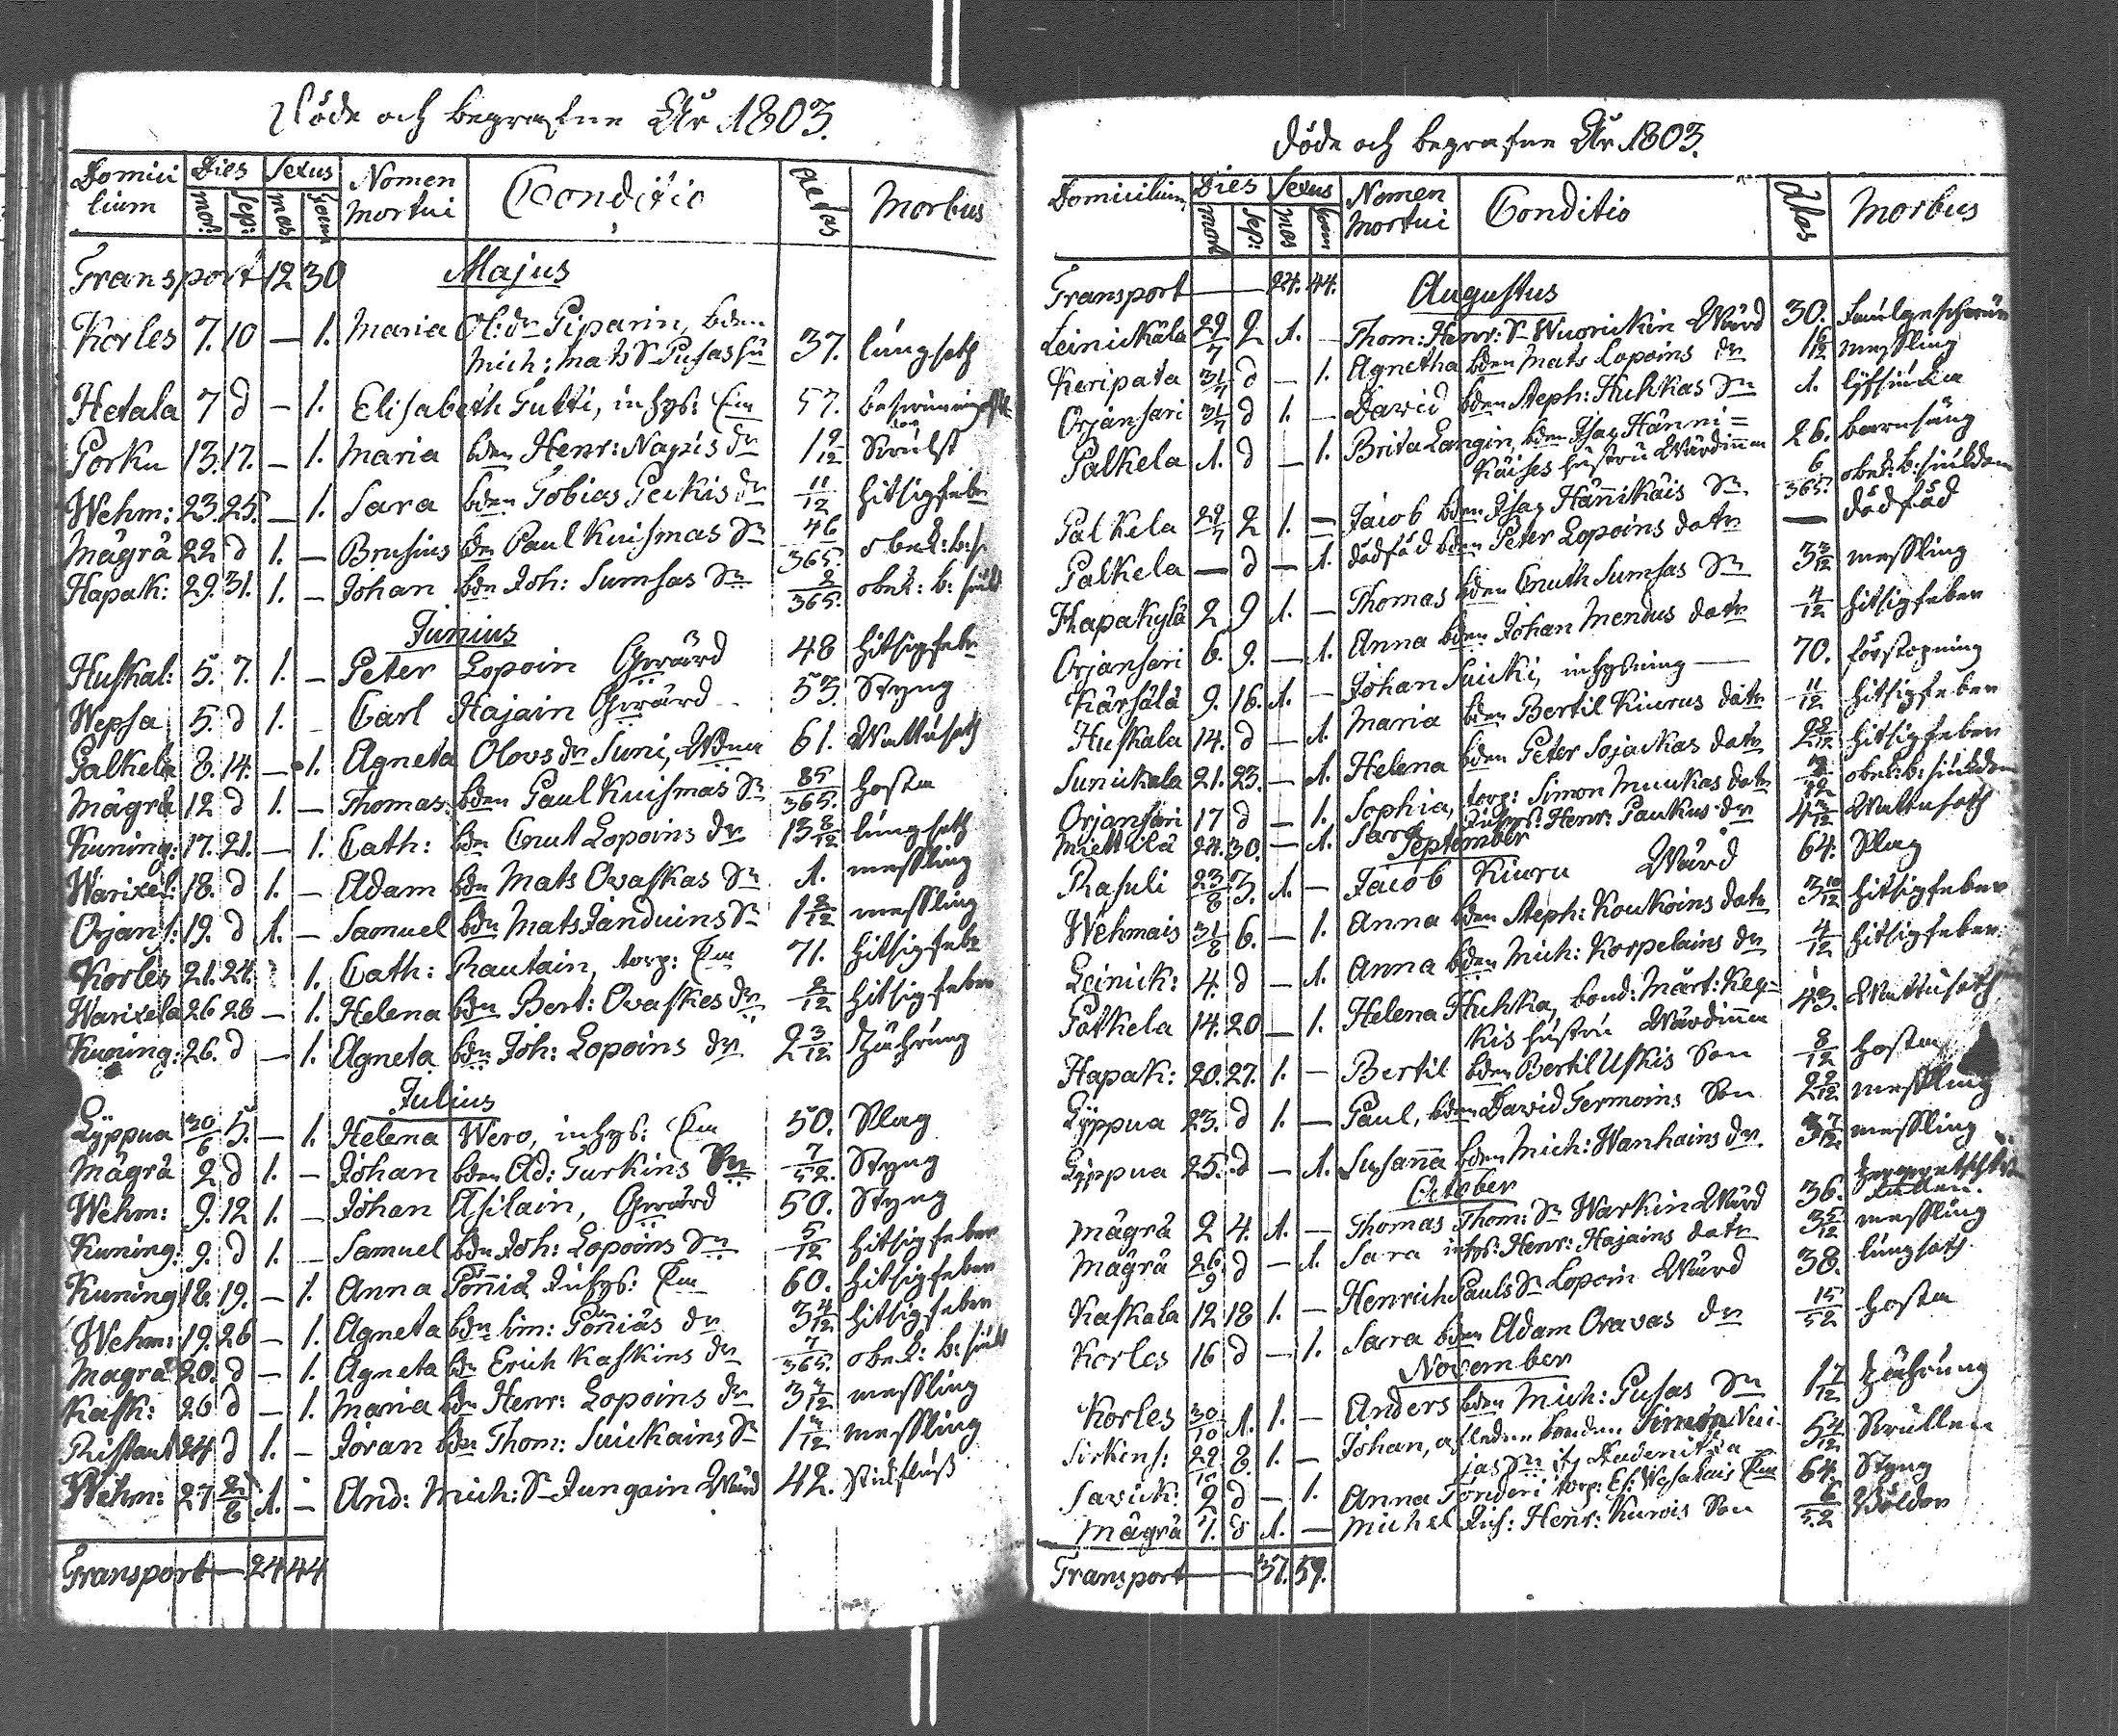 Döde och begrafne År 1803.
Domici Dies Sexus Nomen Conditio Aetas Morbus
lium mor: sep: mas foem mortui
Transport 12 30 Majus
Korles 7. 10 — 1. Maria Ol: dr Piparin, bden
Mich: Mats Sn Pusas hu 37. lungsoth
Hetala 7 d — 1. Elisabeth Tutti, inhys: Enk 57.
Porku 13. 17. — 1. Maria bden Henr: Napis dr 1 9/12
Wehm: 23. 25. — 1. Sara bden Tobias Peckis dr 11/12 hitsigfeber
Mägrä 22 d 1. — Brusius bden Paul Kuismas Sn 46/365. obek: b: s.
Hapak: 29. 31. 1. — Johan bden Joh: Sumsas Sn 2/365. obek: b: siukd
Junius
Huskal: 5. 7. 1. — Peter Lopoin 48 hitsigfeber
Wepsa 5. d 1. — Carl Hajain 53. Styng
Palkela 8. 14. — 1. Agneta Olovs dr Suni, 61. Wattusoth
Mägrä 12 d 1. — Thomas bden Paul Kuismas Sn 85/365. hosta
Kuning: 17. 21. — 1. Cath: bden Cnut Lopoins dr 13 8/12 lungsoth
Warixel: 18. d 1. — Adam bden Mats Ovaskas Sn 1. messling
Orjans: 19. d 1. — Samuel bden Mats Janduins Sn 1 8/12 messling
Korles 21. 24. 1. Cath: Rautain, torp: Enk 71. hitsigfeber
Warixela 26 28 — 1. Helena bden Bert: Ovaskes dr 2/12 hitsigfeber
Kuning: 26. d — 1. Agneta bden Joh: Lopoins dr 2 3/12
Julius
Lyppua 30/6 5. — 1. Helena Wero, inhys: Enk 50. Slag
Mägrä 2 d 1. — Johan bden Ad: Turkins Sn 7/52. Styng
Wehm: 9. 12 1. — Johan Asilain, 50. Styng
Kuning: 9. d 1. — Samuel bden Joh: Lopoins Sn 5/12 hitsigfeber
Kuning 18. 19. — 1. Anna Pönniä Inhys: Enk 60. hitsigfeber
Wehm: 19. 26 — 1. Agneta bden Sim: Pönniäs dr 3 4/12 hitsigfeber
Mägrä 20. d — 1. Agneta bden Erich Kaskins dr 7/365. obek: b: siukd
Kask: 26 d — 1. Maria bden Henr: Lopoins dr messling
Ristaut 24 d 1. — Jöran bden Thom: Suickains Sn messling
Wehm: 27 2/8 1. — And: Mich: Sn Jungain Wärd 42. Stickfluss
Transport — 24 44
Döde och begrafne År 1803.
Domicilium, Dies Sexus Nomen Conditio Aetas Morbus
mort sep: mas foem mortui
Transport — 24. 44. Augustus
Leinickälä 29/7 2 1. — Thom: Henr: Sn Wuorickin Wärd 30.
Keripata 31/7 d — 1. Agnetha bden Mats Lopoins dr messling
Orjansari 31/7 d 1. — David bden Steph: Huhkas Sn 1.
Palkela 1. d — 1. Brita Langin, bden Isac Hänni=
käises hustru Wärdinna 26. barnsäng
Palkela 29/7 2 1. — Jacob bden Isac Hännikäis Sn 6/365. obek: b: siukdom
Palkela — d — 1. dödföd bden Peter Lopoins dotr — dödföd
Hapakylä 2 9 1. — Thomas bden Cnuth Sumsas Sn 3 3/12 messling
Orjansari 6. 9. — 1. Anna bden Johan Mendus dotr 4/12 hitsigfeber
Kärsälä 9. 16. 1. — Johan Suicki, inhysning — 70. förstopning
Huskala 14. d — 1 Maria bden Bertil Kiurus dotr 11/12 hitsigfeber
Sunickala 21. 23. — 1. Helena bden Peter Sojackas dotr hitsigfeber
Orjansari 17 d — 1. Sophia, torp: Simon Muickas dotr obek: b: siukdom
Miettilä 24. 30. — 1. Sara Inhys: Henr: Paukus dr Wattusoth
September
Rasuli 23/8 3. 1. — Jacob Kiuru Wärd 64. Slag
Wehmais 31/8 6. — 1. Anna bden Steph: Koukoins dotr 3 10/12 hitsigfeber
Leinick: 4. d — 1. Anna bden Mich: Korpelains dr 4/12 hitsigfeber
Palkela 14. 20 — 1. Helena Huhka, bond: Märt: Keg=
kis hustru Wärdinna 43. Wattusoth
Hapak: 20. 27. 1. — Bertil bden Bertil Uskis Son 8/12 hosta
Lyppua 23. d 1. — Paul, bden David Termoins Son 2 9/12 messling
Lyppua 25. d — 1. Susanna bden Mich: Wanhains dr messling
October
Mägrä 2 4. 1. — Thomas Thom: Sn Warkin Wärd 36.
Mägrä 26/9 d — 1. Sara inhys: Henr: Hajains dotr 3 5/12 messling
Kaskala 12 18 1. — Henrich Pauls Sn Lopoin Wärd 38. lungsoth
Korles 16 d — 1. Sara bden Adam Oravas dr 15/52 hosta
November
Korles 30/10 1. 1. — Anders bden Mich: Pusas Sn 1 7/12
Sirkens: 29/10 8. 1. — Johan, afledne bonden Simon Nui-
jas Sn 5 4/12
Savick: 2 d — 1. Anna Tönderi torp: Es: Wesalais Enk 64. Styng
Mägrä 7. 8 1. — Michel Inh: Henr: Kurois Son 6/52
Transport — 37. 59.